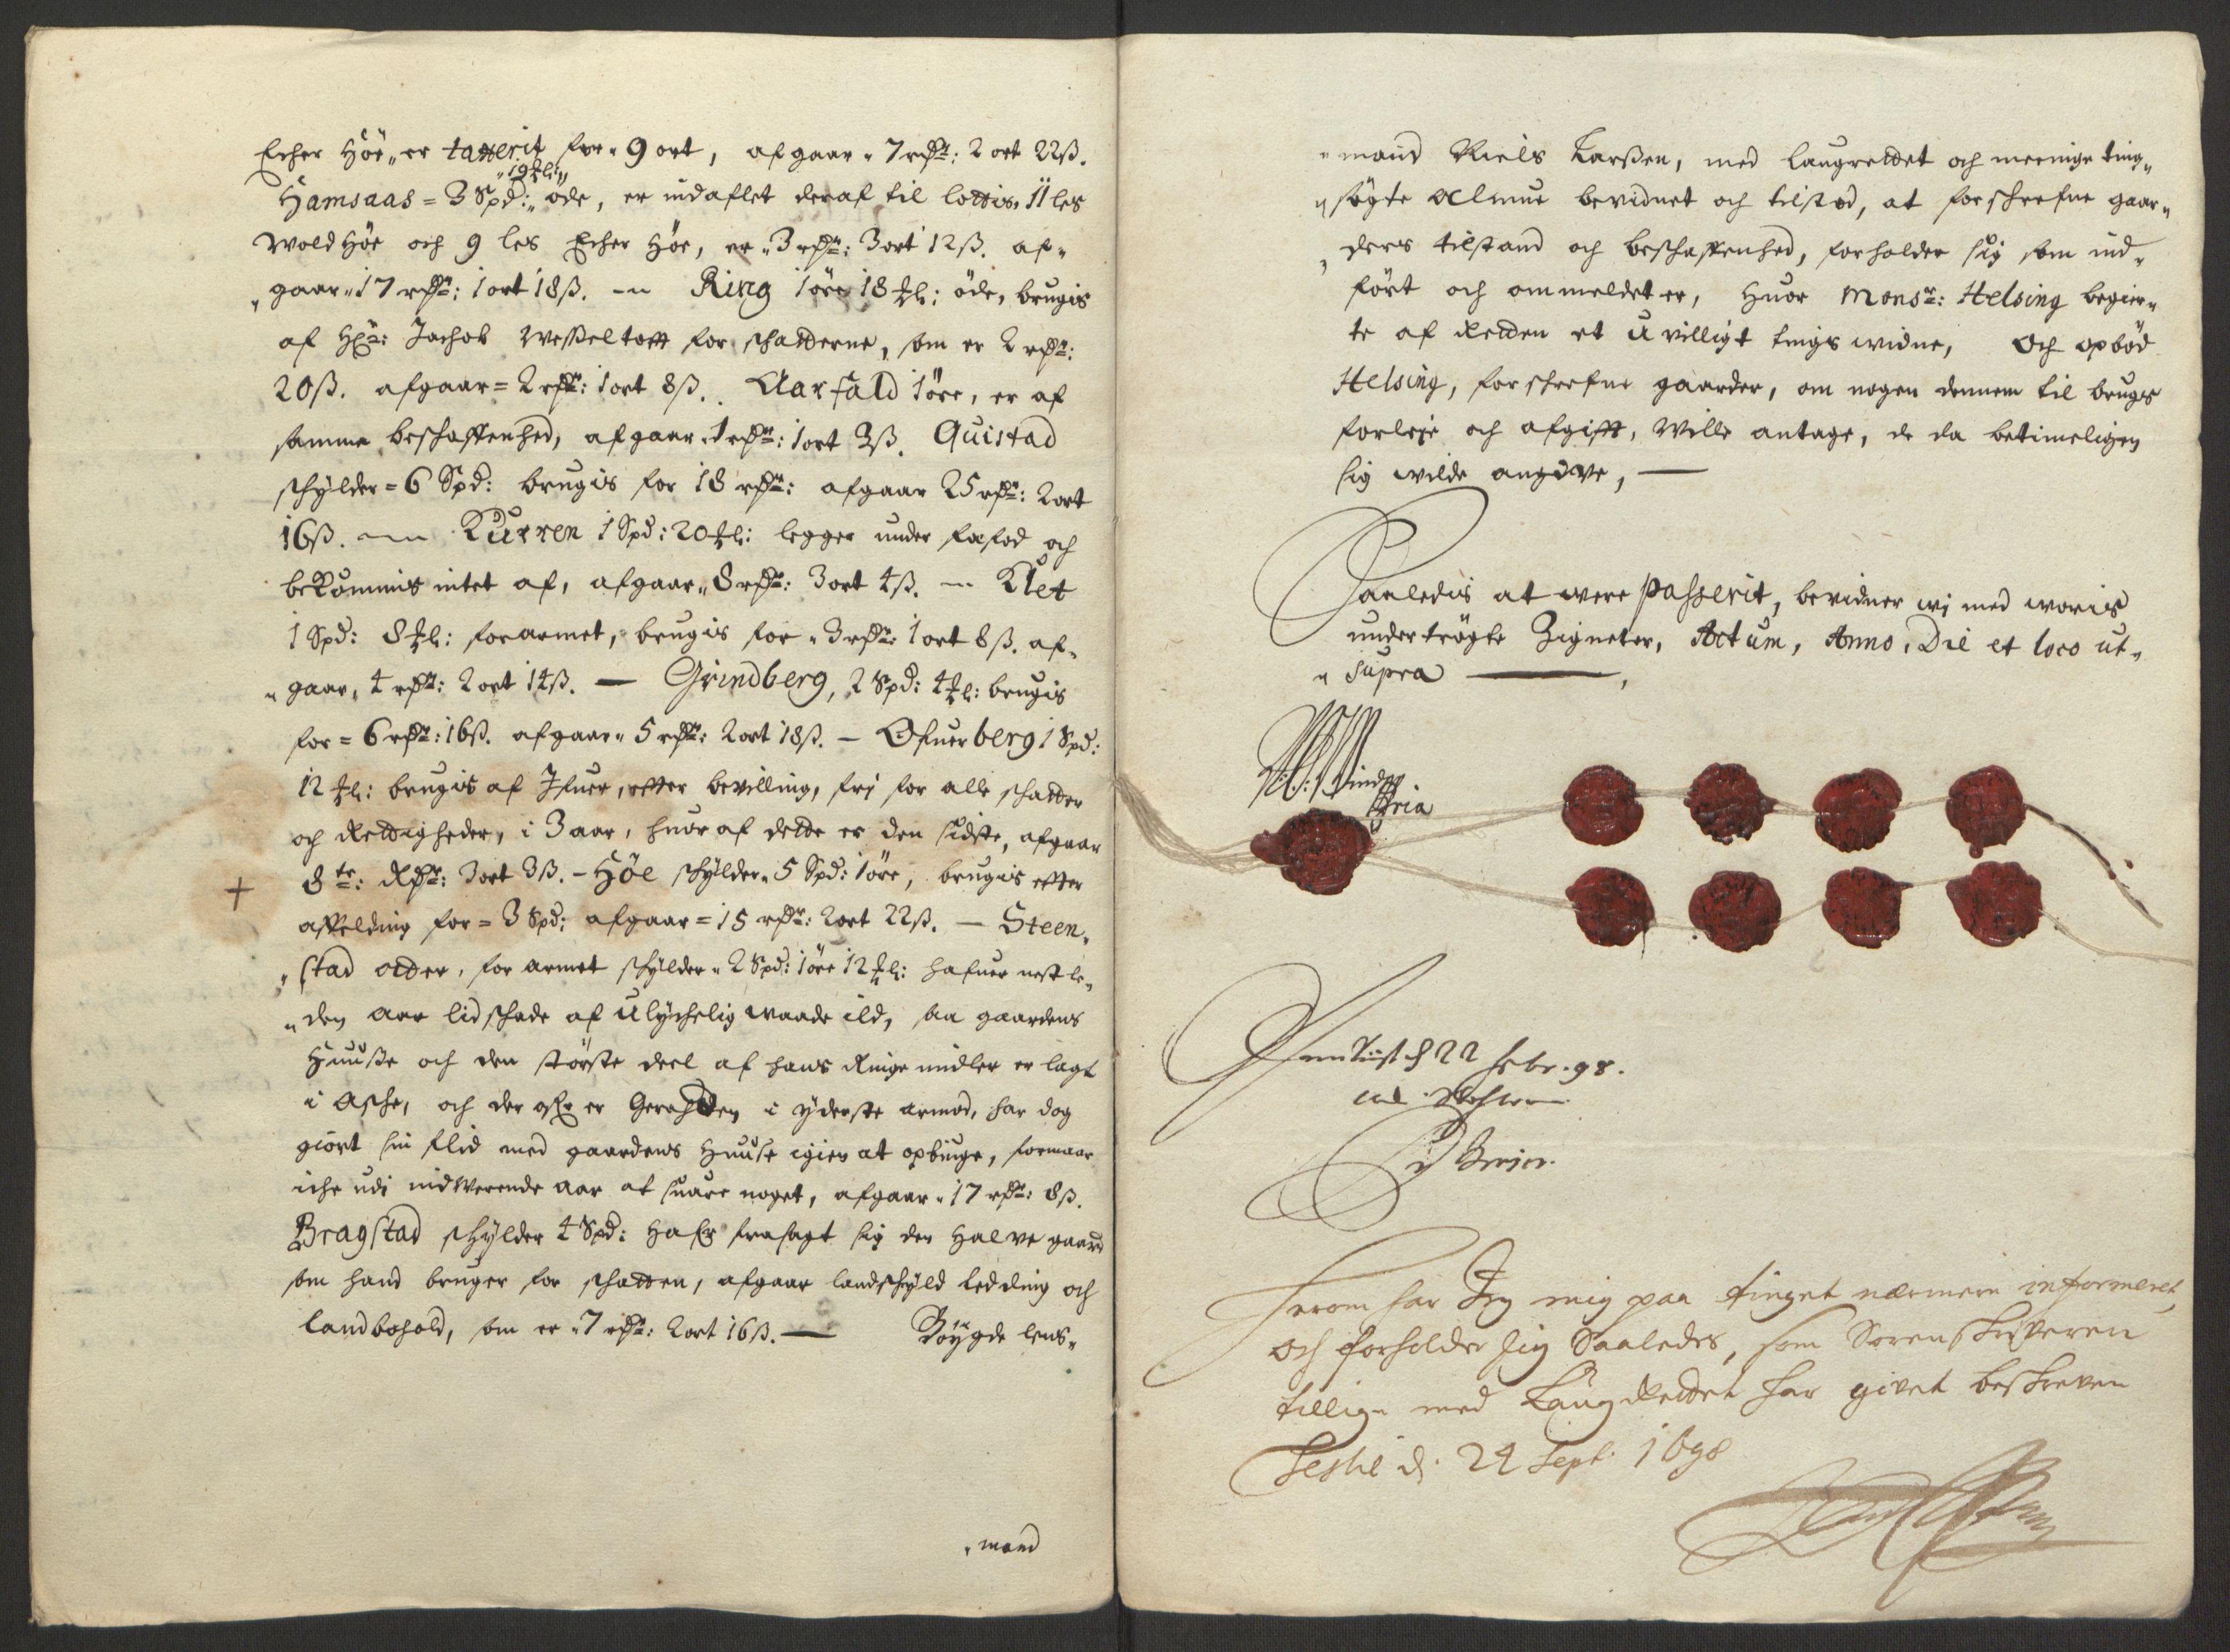 Echer Höe, er taxerit for 9 ort, afgaar 7 rdr: 2 ort 22ß.
19 ml:
Hamsaas = 3 Spd: öde, er indaflet deraf til lottis, 11 les
Wold Höe och 9 les Echer Höe, er 3 rdr: 3 ort 12ß. af-
gaar 17 rdr: 1 ort 18ß. — Ring 1 öre 18 ml: öde, brugis
af Hr: Jachob Wesseltoft for schatterne, som er 2 rdr:
20ß. afgaar = 2 rdr: 1 ort 8ß. Aarfald 1 öre, er af
samme beschaffenhed, afgaar 1 rdr: 1 ort 3ß. Quistad
schylder = 6 Spd: brugis for 18 rdr: afgaar 25 rdr: 2 ort
16ß. — Kurren 1 Spd: 20 ml: legger under fæfod och
bekommis intet af, afgaar 8 rdr: 3 ort 4ß. — Klet
1 Spd: 8 ml: forarmet, brugis for 3 rdr: 1 ort 8ß. af-
gaar, 4 rdr: 2 ort 14ß. — Grindberg, 2 Spd: 4 ml: brugis
for = 6 rdr: 16ß. afgaar 5 rdr: 2 ort 18ß. — Ofuerberg 1 Spd:
12 ml: brugis af Ifuer, efter bevilling, fri for alle schatter
och Rettigheder, i 3 aar, huor af dette er den sidste, afgaar
+ 8 tr: Rdr: 3 ort 3ß. — Höe schylder 5 Spd: 1 öre, brugis efter
affelding for = 3 Spd: afgaar = 15 rdr: 2 ort 22ß. — Steen-
stad atter, for armet schylder 2 Spd: 1 öre 12 ml: hafuer nest le-
den aar lid schade af ulychelig waade ild, saa gaardens
Huusse och den störste deel af hans Ringe midler er lagt
i Asche, och der ofr er Gerahten i yderste armod, har dog
giort sin flid med gaardens Huuse igien at opbiuge, formaar
iche udi nidwerende aar at suare noget, afgaar 17 rdr: 8ß.
Bragstad schylder 4 Spd: Hafr frasagt sig den Halve gaard
som hand bruger for schatten, afgaar landschyld Ledding och
landbohold, som er 7 rdr: 2 ort 16ß. — Böygde lens-
mand
mand Niels Larßen, med laugrettet och meenige ting-
søgte Almue bevidnet och tilstod, at forschrefne gaar-
ders tilstand och beschaffenhed, forholder sig som ind-
fört och ommeldet er, Huor Monsr: Helsing begier-
te af Retten et u villigt tings widne, Och opbød
Helsing, forschrefne gaarder, om nogen dennem til brugs
forleje och afgift, Wille antage, de da betimeligen
sig wilde angive, —
Saaledis at were passerit, bevidner wj med woris
undertrögte Zigneter, Actum, Anno, Die et loco ut-
supra —
22 Febr. 98.
Herom har Jeg mig paa tinget nærmere informeret,
och forholder sig Saaledes, som Sorenskriveren
tillige med LaugRettet har givet beskreven
d. 24 Sept. 1698